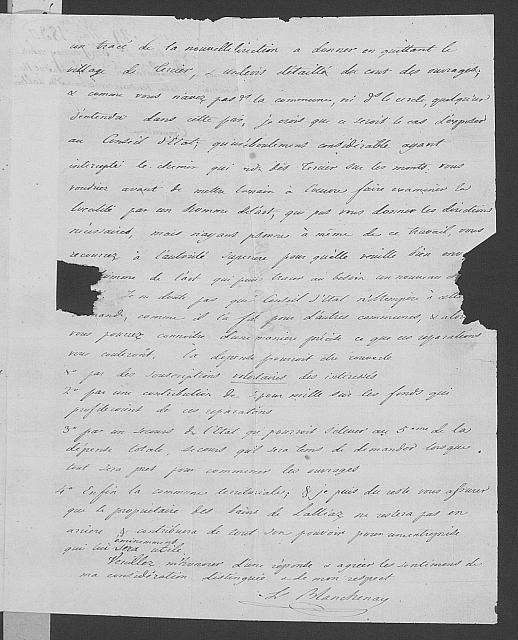 un tracé de la nouvelle direction a donner en quittant le
village de Tercier, & un devis détaillé du cout des ouvrages;
& comme vous n'avez pas ds la commune, ni ds le cercle quelqu'un
d'entendu dans cette partie, je crois que ce seroit le cas d'exposer
au Conseil d'Etat, qu'un éboulement considérable ayant
intercepté le chemin qui va dès Tercier sur les monts, vous
voudriez avant de mettre la main à l'œuvre faire examiner la
localité par un homme de l'art, qui put vous donner les directions
nécessaires, mais n'ayant personne à même de ce travail, vous
recourez à l'autorité Superieure pour qu'elle veuille bien
homme de l'art qui puisse tracer au besoin un nouveau
Je ne doute pas que le Conseil d'état n'obtempère à
comme il l'a fait pour d'autres communes, & alors
vous pourrez connoitre d'une manière précise ce que ces réparations
vous couteront. la dépense pourroit etre couverte
1° par des souscriptions volontaires des interessés
2° par une contribution de pour mille sur les fonds qui
profiteroient de ces réparations
3° par un secours de l'Etat qui pourroit s'élever au 5me de la
dépense totale, secours qu'il sera tems de demander lorsque
tout sera pret pour commencer les ouvrages
4° Enfin la commune territoriale; & je puis du reste vous assurer
que le propriétaire des bains de Lalliaz ne restera pas en
arrière, & contribuera de tout son pouvoir pour une entreprise
qui lui sera éminemment utile.
Veuillez m'honorer d'une réponse & agréer les sentimens de
ma considération distinguée & de mon respect
L. Blanchenay